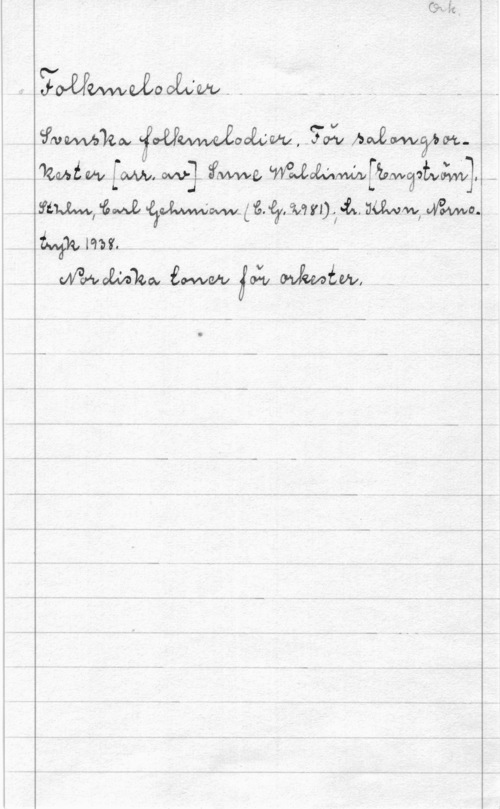 Ork.
Folkmelodier
Svenska folkmelodier. För salongsor-
kester [arr. av] Sune Waldimir [Engström].
Sthlm, Carl Gehrmian (C. G. 2981); tr. Khvn, Norno-
tryk 1938.
Nordiska toner för orkester.